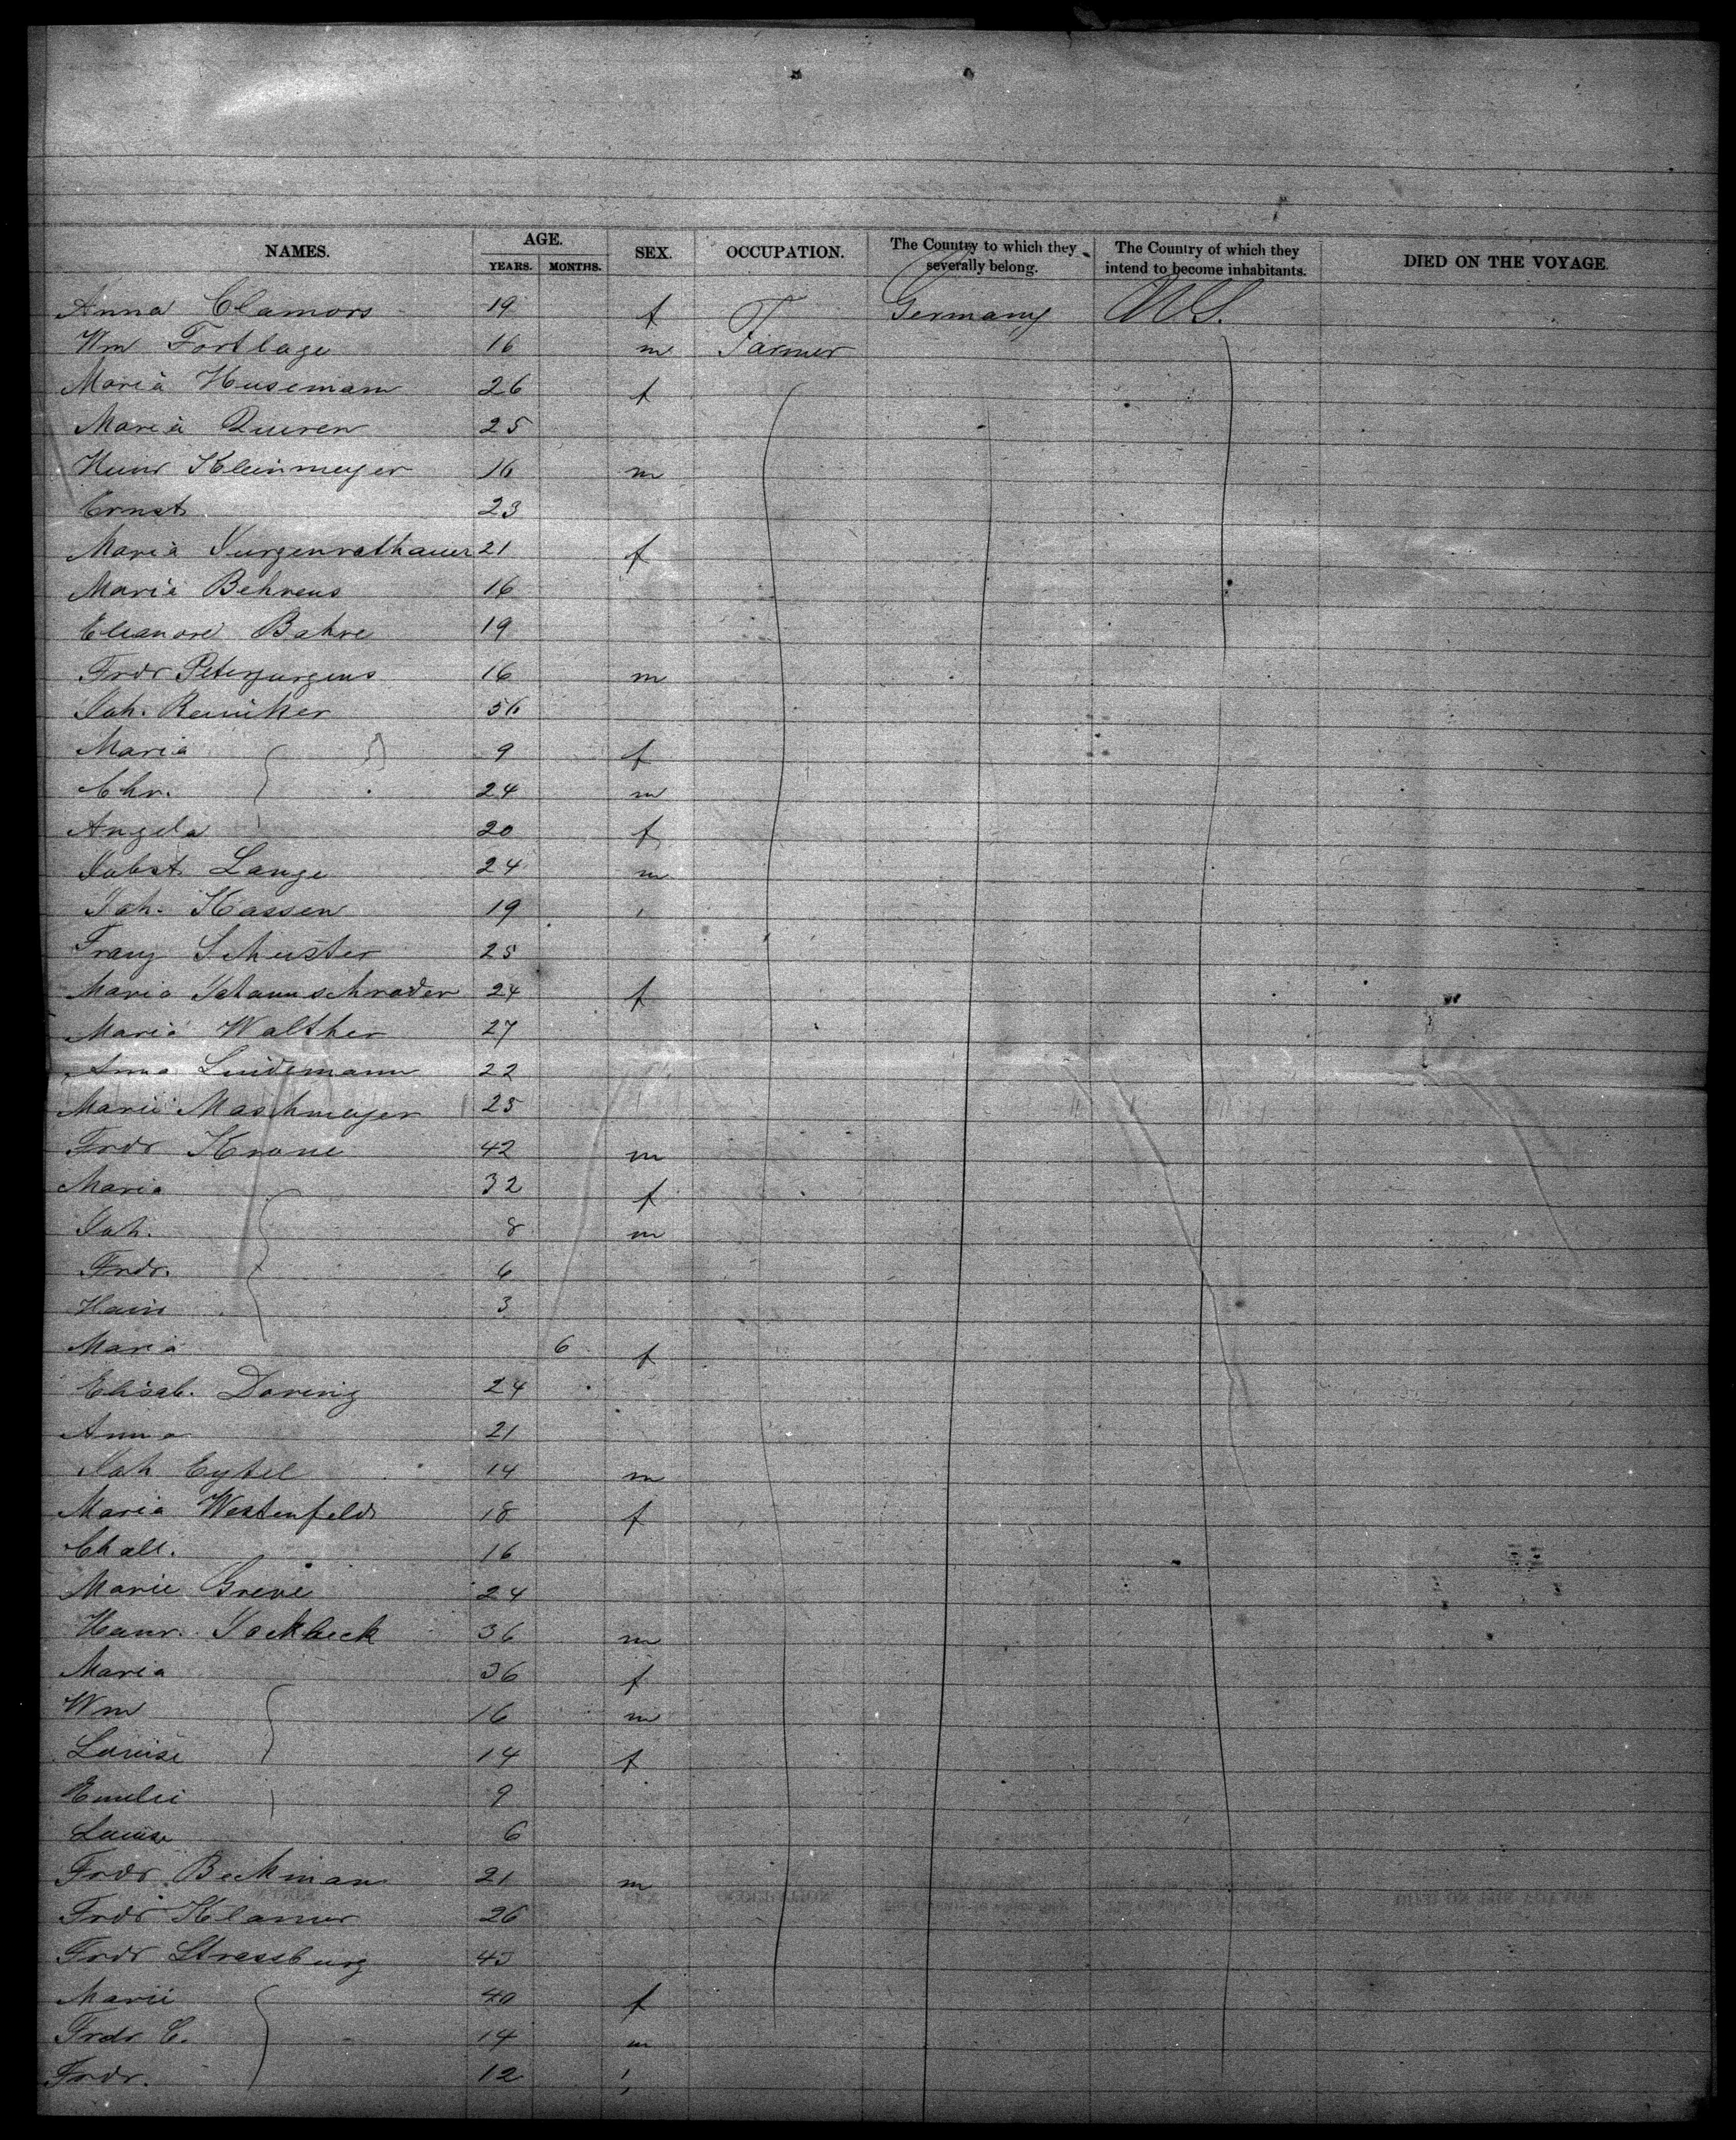 NAMES. AGE. SEX. OCCUPATION. The Country to which they severally belong. The Country of which they intend to become inhabitants. DIED ON THE VOYAGE.
YEARS. MONTHS.
Anna Clamors 19 f Germany U.S.
Wm Fortlage 16 m Farmer
Maria Husemann 26 f
Maria 25
Heinr Kleinmeyer 16 m
Ernst 23
Maria 21 f
Marie Behrens 16
Eleanore Bahre 19
Frdr Peterjurgens 16 m
Joh. Reiniker 56
Maria 9 f
Chr. 24 m
Angela 20 f
Jobst Lange 24 m
Joh. Kassen 19 "
Franz Schuster 25
Maria Johannschrader 24 f
Maria Walther 27
Anna Lindemann 22
Marie Maschmeyer 25
Frdr Krone 42 m
Maria 32 f
Joh. 8 m
Frdr. 6
Heinr 3
Maria 6 f
Elisab. Doring 24
Anna 21
Joh Eytel 14 m
Maria Westenfeld 18 f
16
Marie Greve 24
Heinr. Jockbeck 36 m
Maria 36 f
Wm 16 m
Louise 14 f
Emilie 9
Louise 6
Frdr Beckman 21 m
Frdr Klamer 26
Frdr Strassburg 43
Marie 40 f
Frdr C. 14 m
Frdr. 12 "